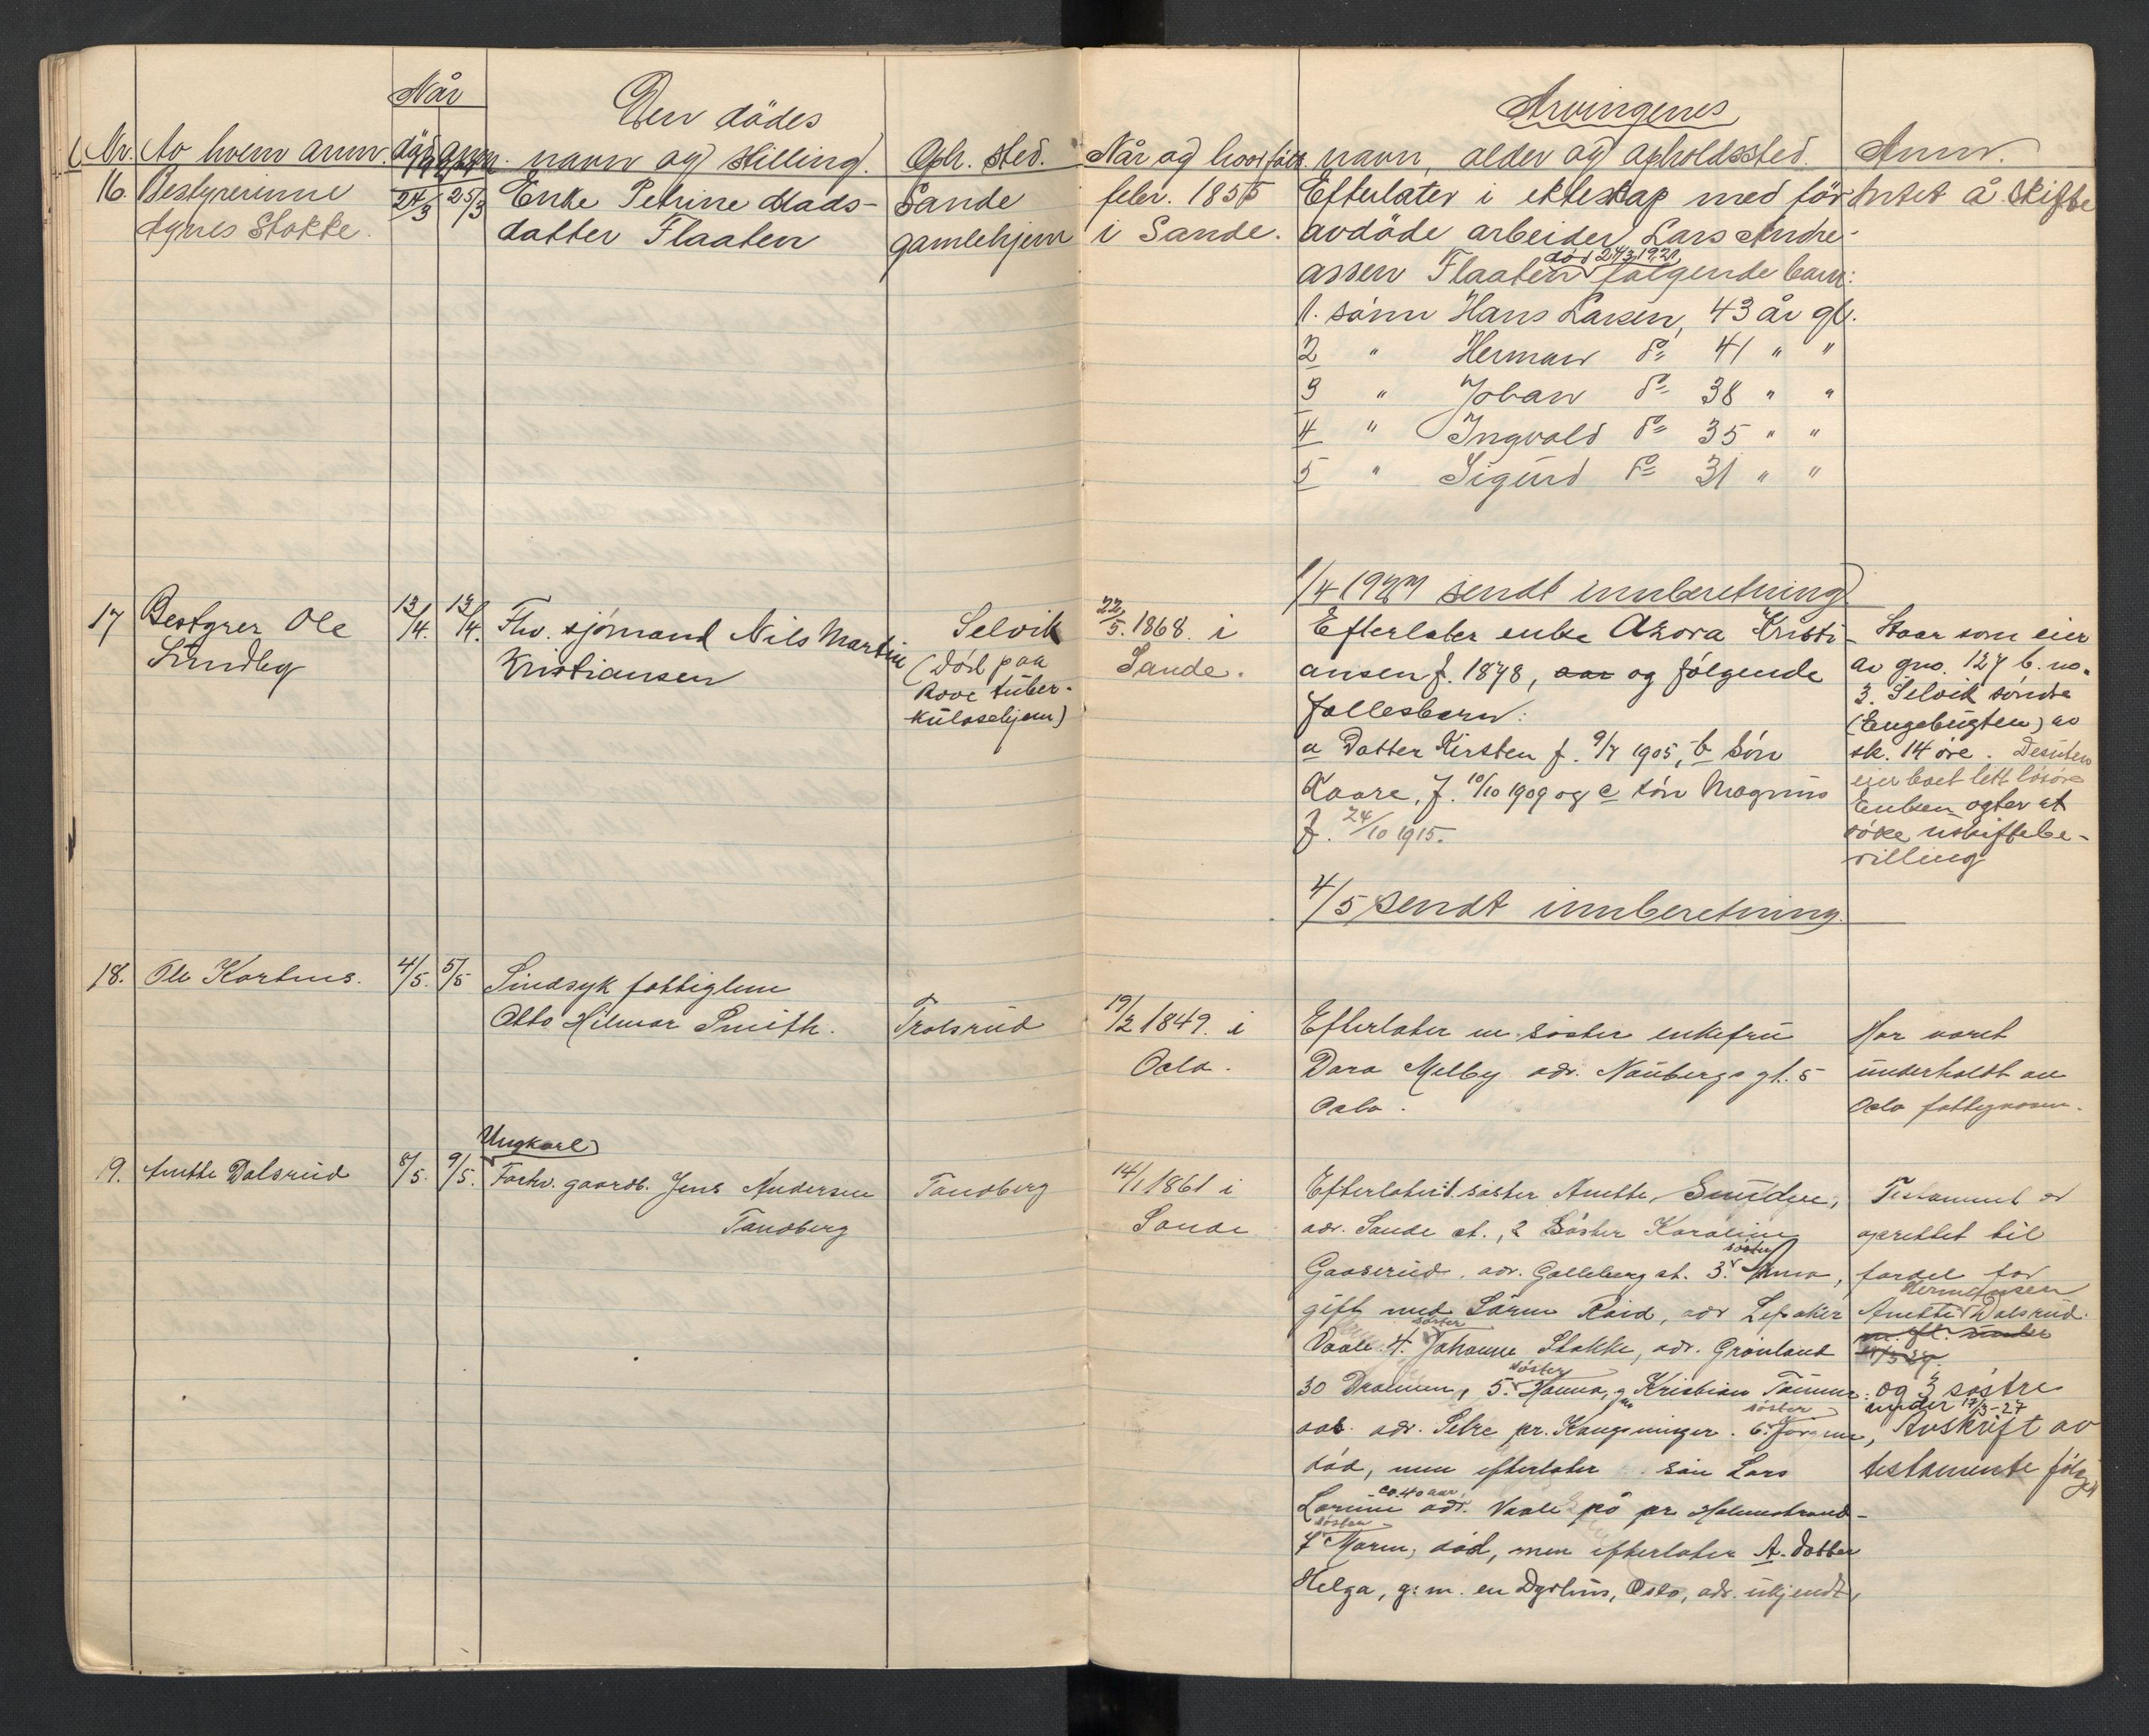 Når
Den dödes
Arvingenes
Nr. Av hvem anm. död anm. navn og stilling. Oph. sted. Når og hvor född navn, alder og opholdssted. Anm.
1927
16. Bestyrerinne 24/3 25/3 Enke Petrine Mads- Sande febr. 1855 Efterlater i ekteskap med för Intet å skifte
Agnes Stokke. datter Flaaten gamlehjem i Sande. avdöde arbeider Lars Andre-
död 24/3 1921
assen Flaaten följgende barn:
1. sönn Hans Larsen, 43 år gl.
2 " Herman do 41 " "
3 " Johan do 38 " "
4 " Ingvald do 35 " "
5 " Sigurd do 31 " "
1/4 1927 sendt innberetning
17 Bestyrer Ole 13/4. 13/4. Fhv. sjømand Nils Martin Selvik 22/5. 1868. i Efterlater enke Azora Kristi- Staar som eier
Sundby Kristiansen (død paa Sande. ansen f. 1878, aar og følgende av gno. 127 b. no.
Rove tuber- fællesbarn: 3. Selvik søndre
kulosehjem) (Engebugten) av
a Datter Kirsten f. 9/7 1905, b Søn sk. 14 øre. Desuten
eier boet litt løsøre
Kaare, f. 10/10 1909 og c søn Magnus Enken agter at
f. 24/10 1915. söke uskiftebe-
villing
4/5 sendt innberetning.
18. Ole Kortnes. 4/5. 5/5 Sindsyk fattiglem
Otto Hilmar Smith. Trolsrud 19/2 1849. i Efterlater en søster enkefru Har været
Oslo. Dara Melby adr. Neubergs gt. 5 underholdt av
Oslo. Oslo fattigvæsen.
Ungkarl
9. Anette Dalsrud 8/5. 9/5. Forhv. gaardb. Jens Andersen Tandberg 14/1 1861 i Efterlater 1. søster Anette, Smidzu, Testament er
Tandberg Sande adr. Sande st., 2 Søster Karoline oprettet til
søster
Gaaserud, adr. Galleberg st. 3. Anna, fordel for
Hermansen
gift med Søren Roid, adr Lepaker Anette Dalsrud.
søster
Vaale 4. Johanne Stokke, adr. Grönland m. fl. under
søster
30 Drammen, 5. Hanna, gm Kristian Tømme- og 3 søstre
søster under 17/3-27
aas. adr. Setre pr. Kongsvinger. 6. Jørgine, Avskrift av
død, men efterlater søn Lars testamente følger
ca. 40 aar.
Larsen adr. Vaale på pr Holmestrand-
søster
7 Maren, död, men efterlater A. datter
Helga, g: m. en Dyrhus, Oslo, adr. ukjendt,